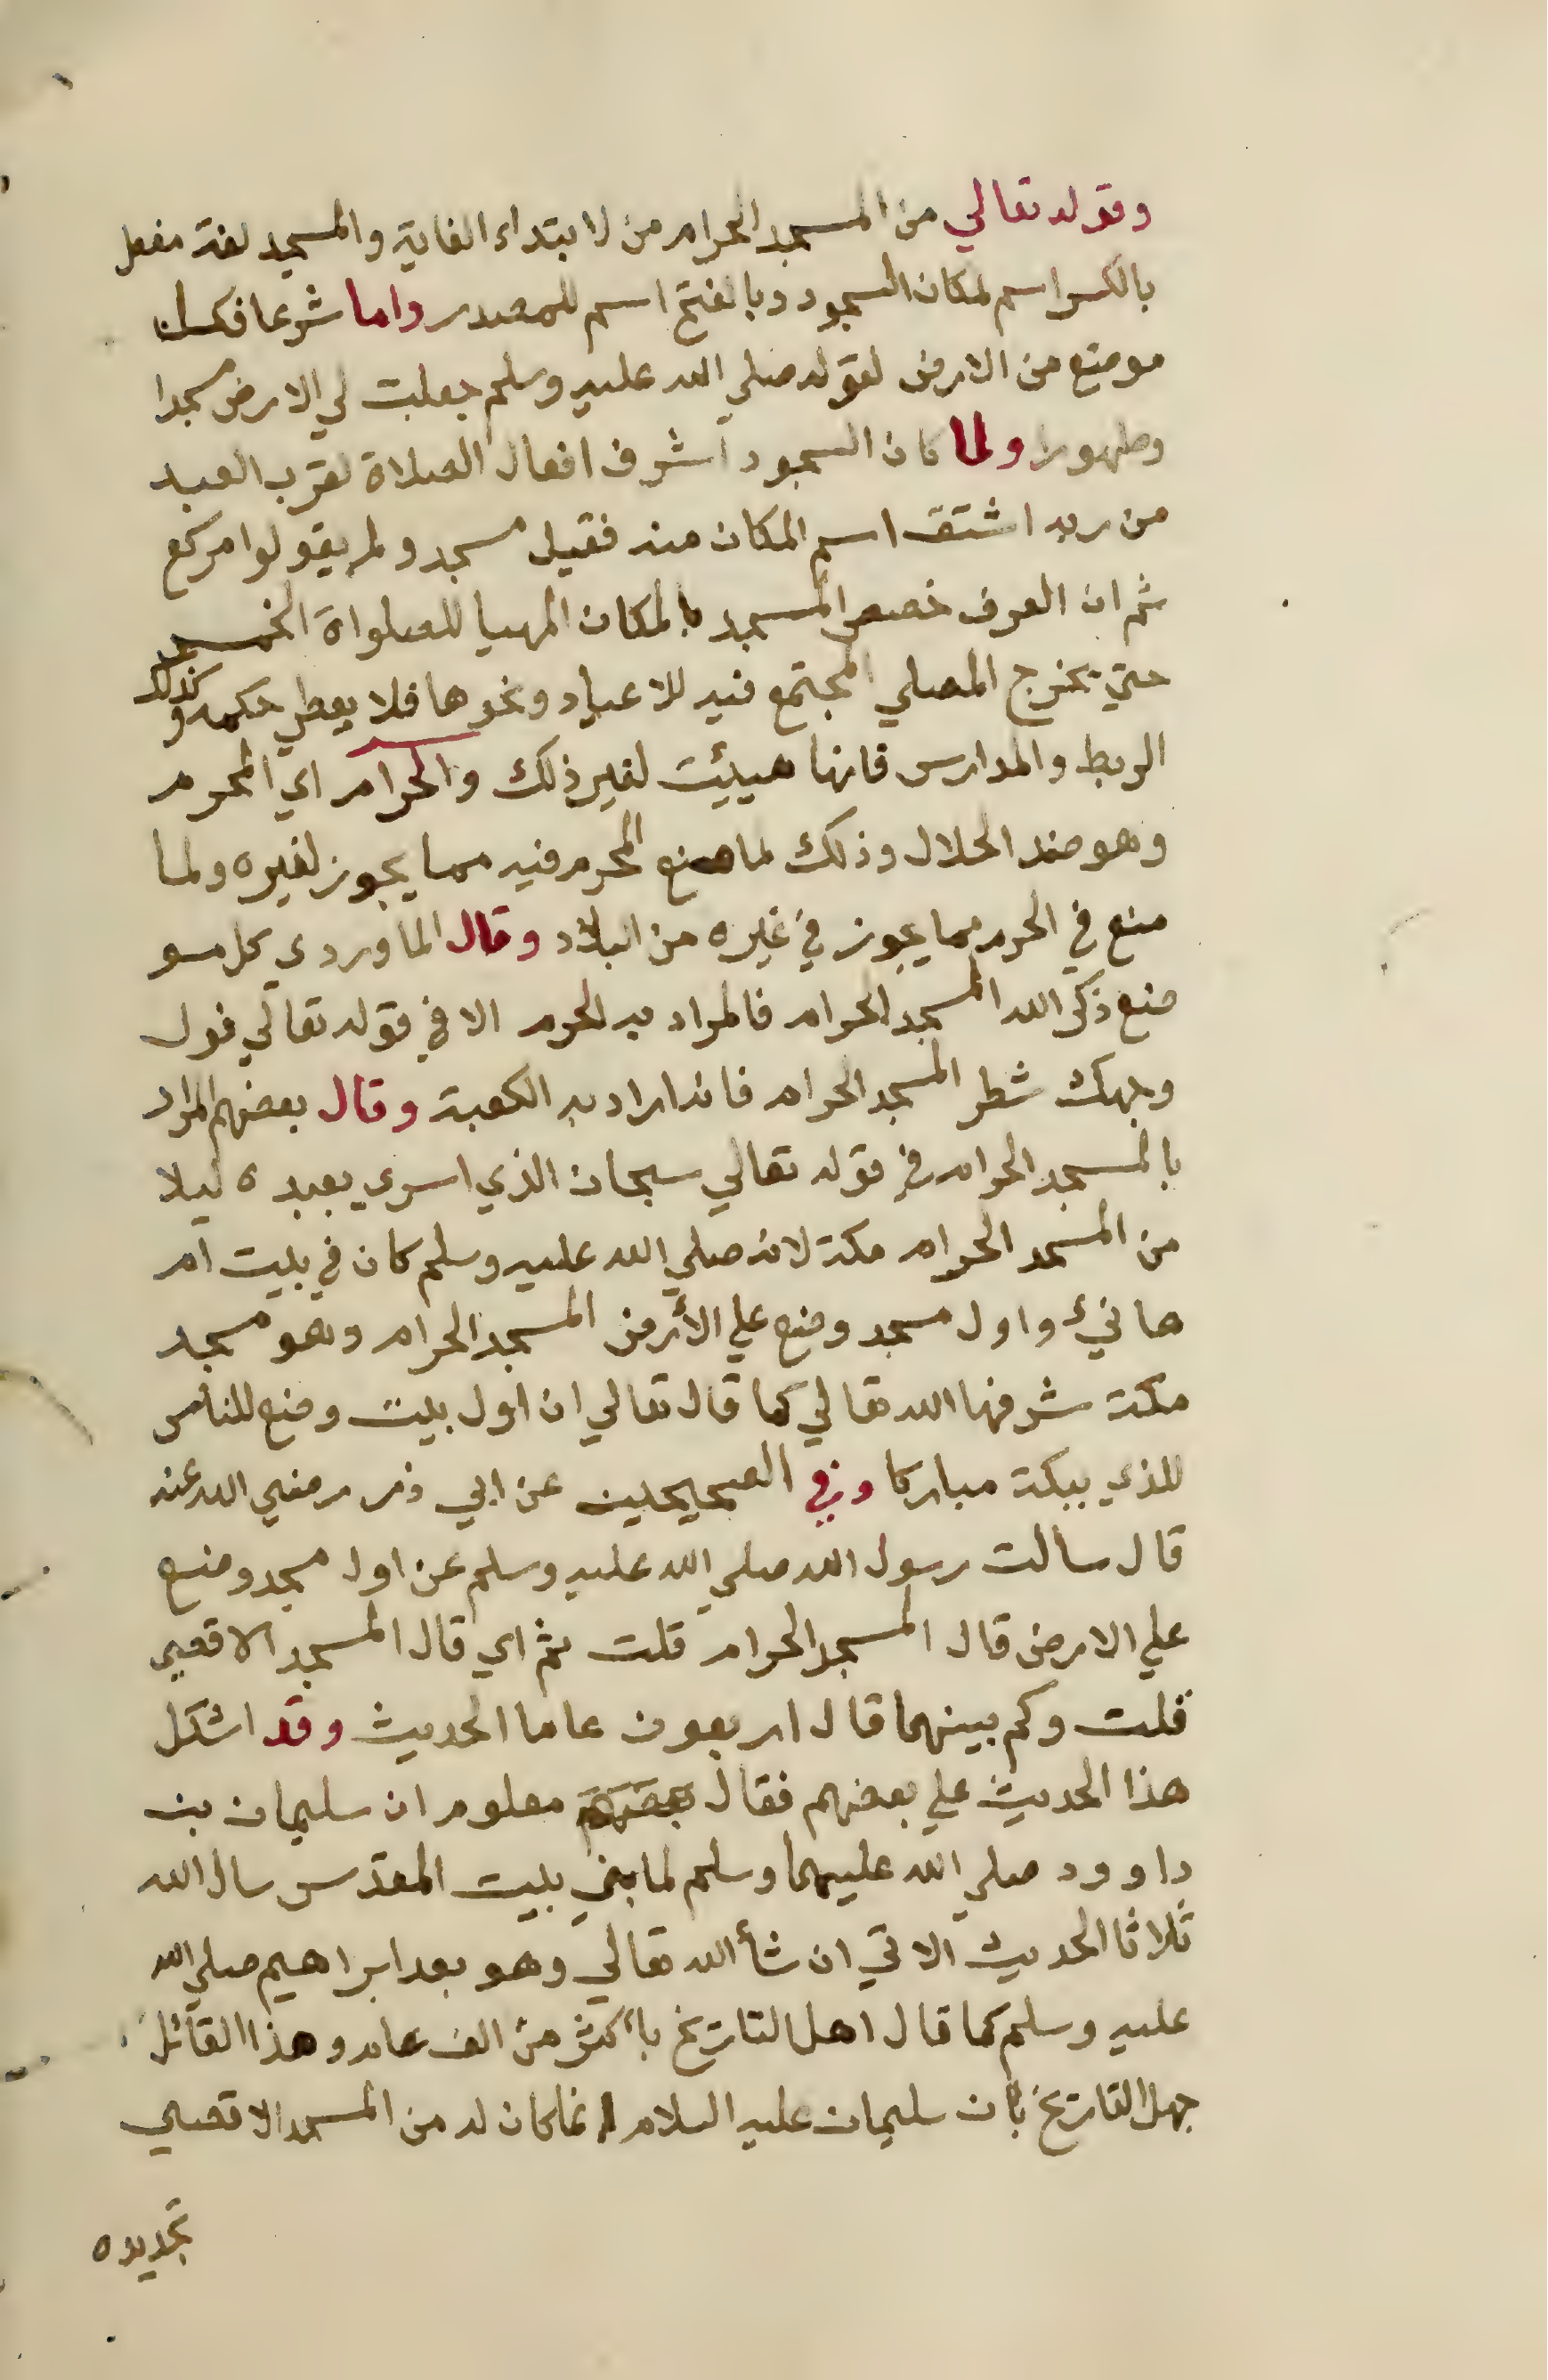 وقوله تعالي من المسجد الحرام من لابتداء الغاية والمسجد لغة مفعل
بالكسر اسم لمكان السجود وبالفتح اسم للمصدر واما شرعا فكل
موضع من الارض لقوله صلي الله عليه وسلم جعلت لي الارض مسجدا
وطهورا ولما كان السجود اشرف افعال الصلاة لقرب العبد
من ربه اشتق اسم المكان منه فقيل مسجد ولم يقولوا مركع
ثم ان العرف خصص المسجد بالمكان المهيا للصلواة الخمس
حتي يخرج المصلي المجتمع فيه للاعياد ونحوها فلا يعطي حكمه وكذلك
الربط والمدارس فانها هيئيت لغير ذلك والحرام اي المحرم
وهو ضد الحلال وذلك لما منع المحرم فيه مما يجوز لغيره ولما
منع في الحرم مما يجوز في غيره من البلاد وقال الماوردي كل مو
ضع ذكر الله المسجد الحرام فالمراد به الحرم الا في قوله تعالي فول
وجهك شطر المسجد الحرام فانه اراد به الكعبة وقال بعضهم المراد
بالمسجد الحرام في قوله تعالي سبحان الذي اسري بعبده ليلا
من المسجد الحرام مكة لانه صلي الله عليه وسلم كان في بيت ام
هانيء واول مسجد وضع علي الأرض المسجد الحرام وهو مسجد
مكة شرفها الله تعالي كما قال تعالي ان اول بيت وضع للناس
للذي ببكة مباركا وفي الصحيحين عن ابي ذر رضي الله عنه
قال سالت رسول الله صلي الله عليه وسلم عن اول مسجد وضع
علي الارض قال المسجد الحرام قلت ثم اي قال المسجد الاقصي
قلت وكم بينهما قال اربعون عاما الحديث وقد اشكل
هذا الحديث علي بعضهم فقال بعضهم معلوم ان سليمان بن
داوود صلي الله عليهما وسلم لما بني بيت المقدس سال الله
ثلاثا الحديث الاتي ان شأ الله تعالي وهو بعد ابراهيم صلي الله
عليه وسلم كما قال اهل التاريخ باكثر من الف عام وهذا القائل
جهل التاريخ بان سليمان عليه السلام انما كان له من المسجد الاقصي
تجديده